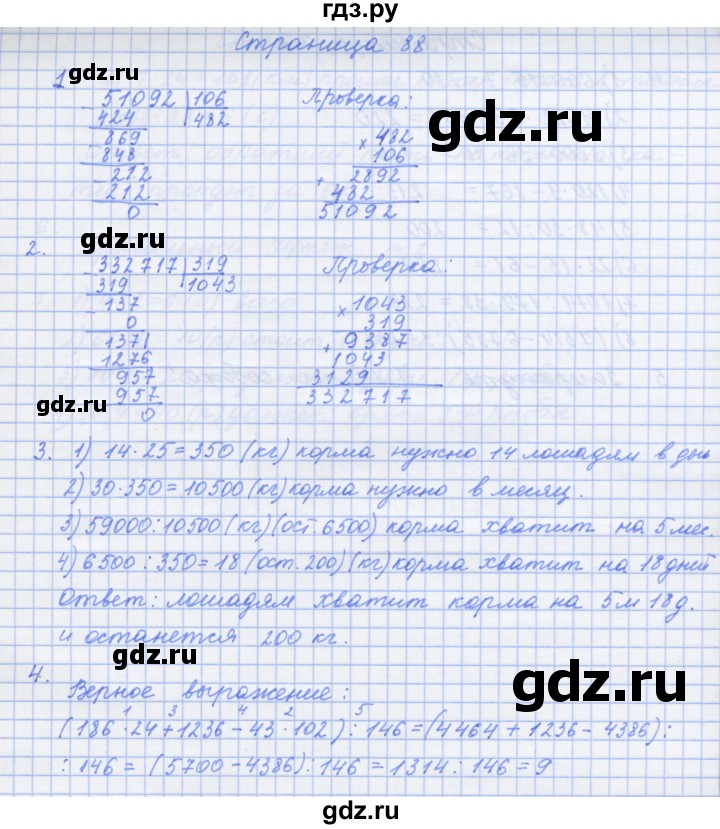 гдз.ру
Страница 88
gdz.ru
1
51092 | 106
424 | 482
869
848
212
212
0
Проверка:
× 482
106
+ 2892
482
51092
gdz.ru
2.
332717 | 319
319 | 1043
137
0
1371
1276
957
957
0
Проверка:
× 1043
319
+ 9387
1043
3129
332717
gdz.ru
3. 1) 14·25=350 (кг) корма нужно 14 лошадям в день
2) 30·350=10500 (кг) корма нужно в месяц.
3) 59000:10500 (кг)(ост. 6500) корма хватит на 5 мес.
4) 6500:350=18 (ост. 200) (кг) корма хватит на 18 дней
Ответ: лошадям хватит корма на 5 м 18 д.
и останется 200 кг.
gdz.ru
4.
Верное выражение:
gdz.ru
1 3 4 2 5
(186·24+1236-43·102):146=(4464+1236-4386):
:146=(5700-4386):146=1314:146=9
gdz.ru